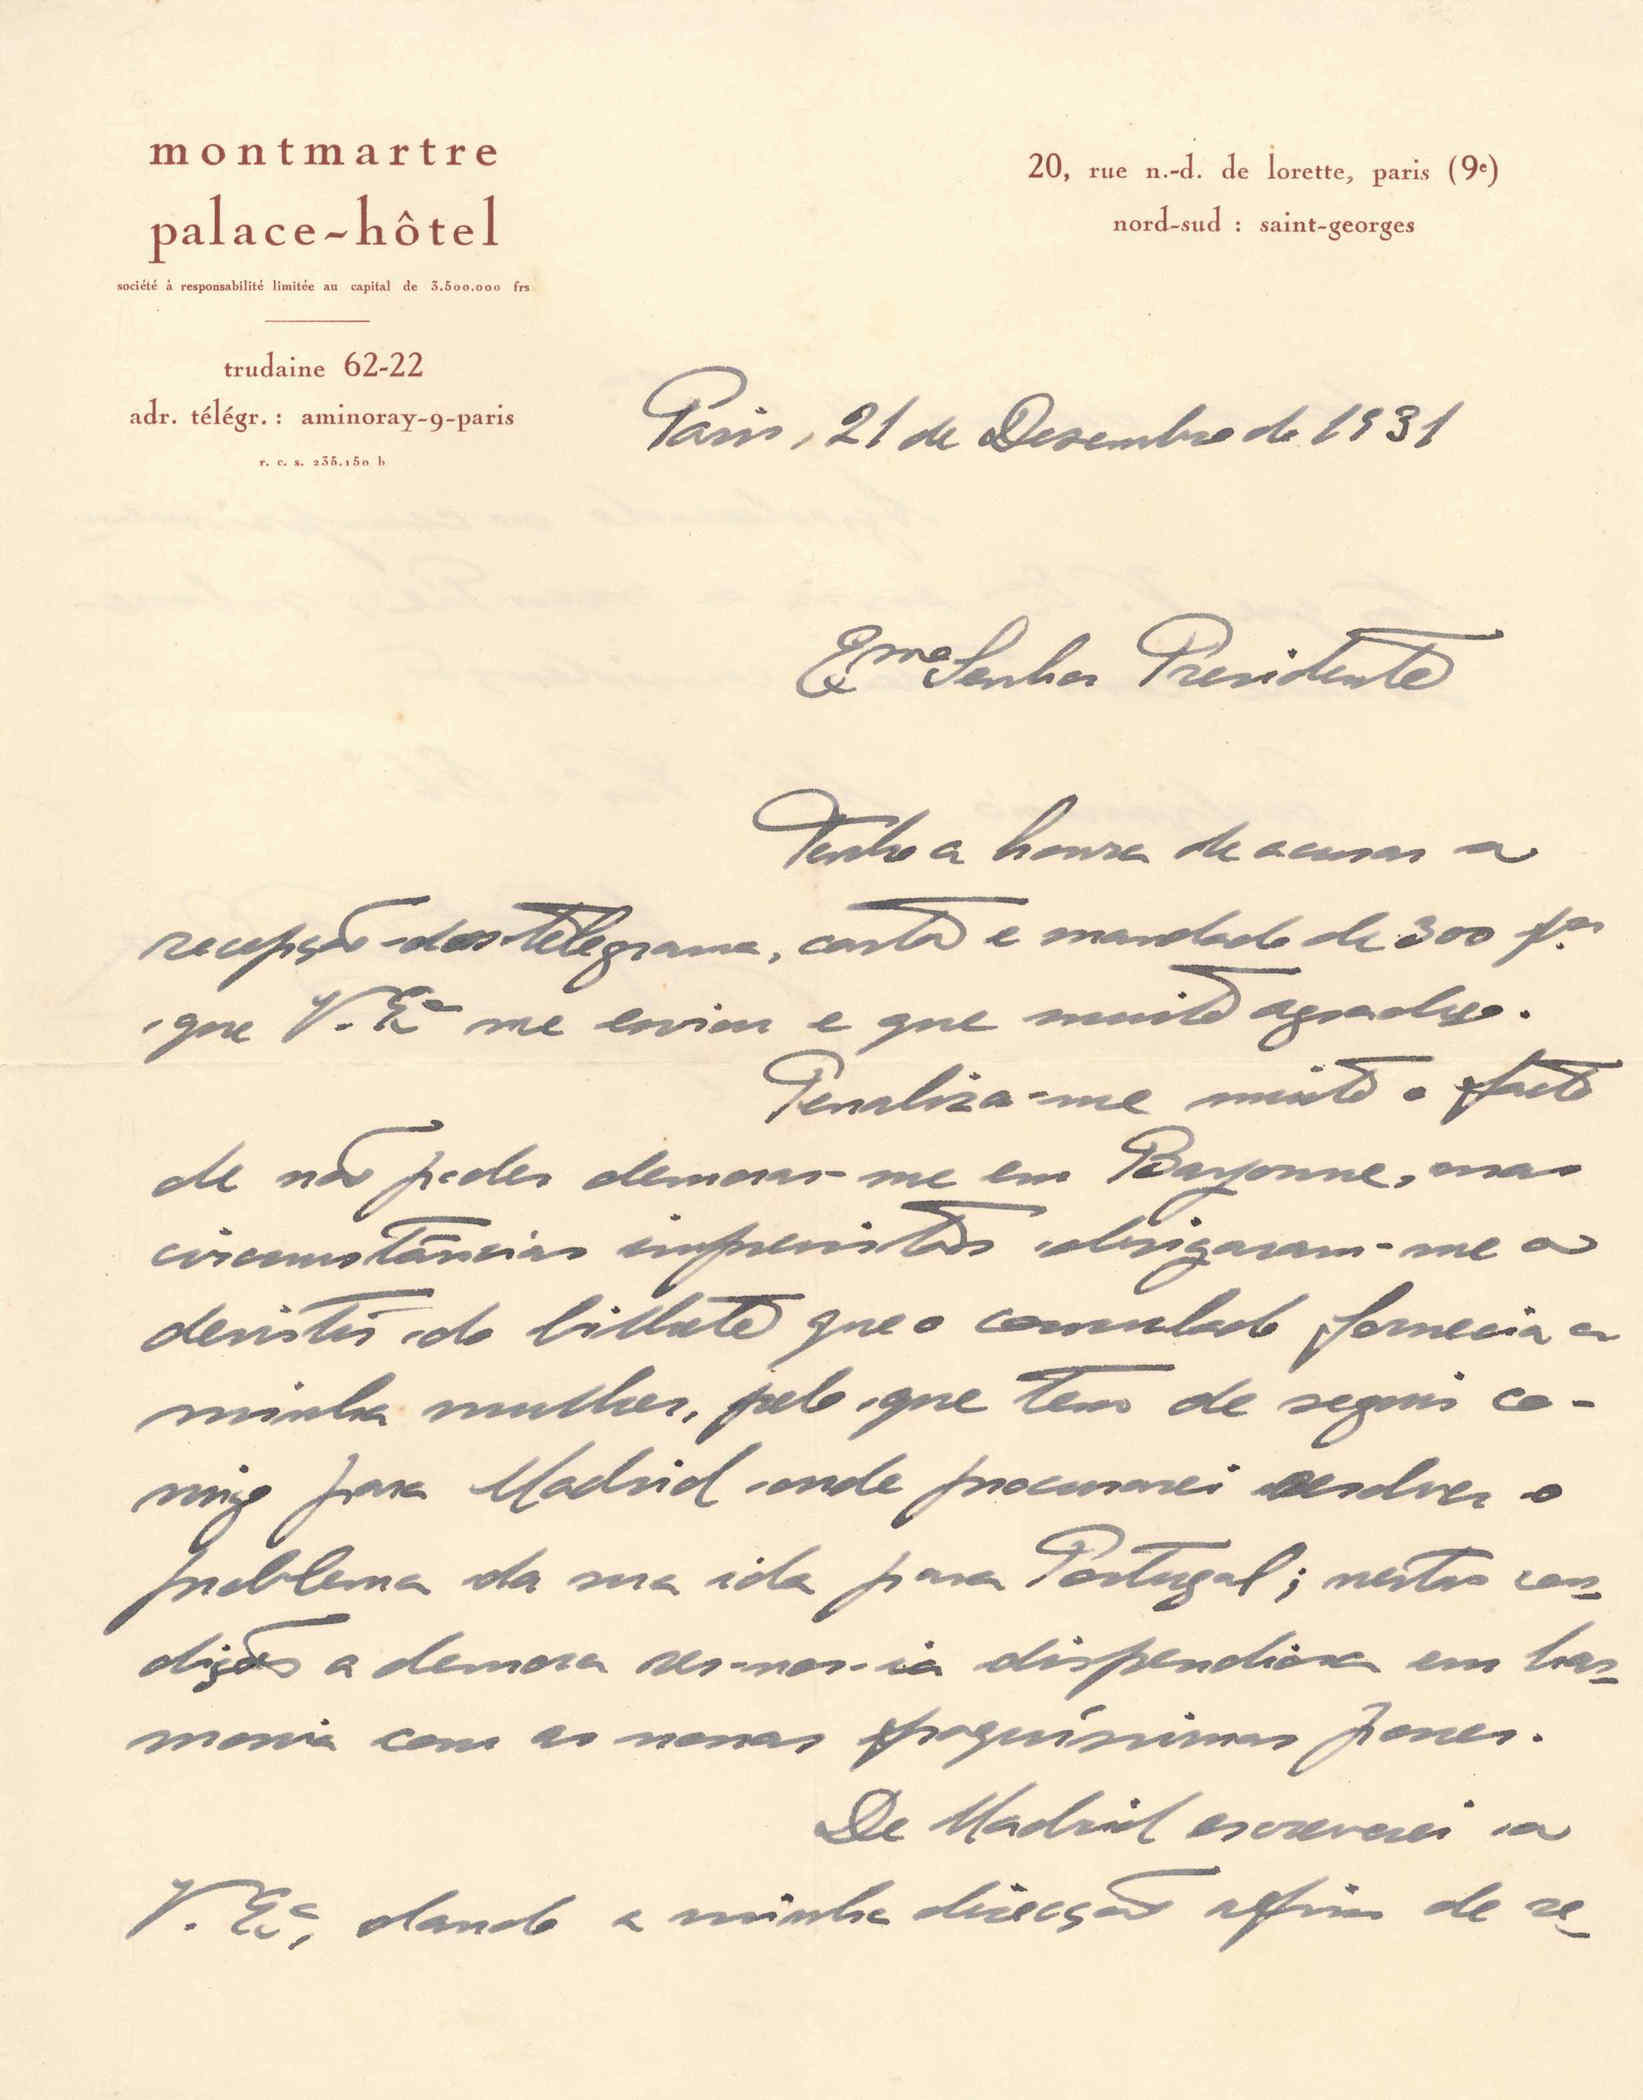 montmartre
palace-hôtel
société à responsabilité limitée au capital de 3.500.000 frs
trudaine 62-22
adr. télégr. : aminoray-9-paris
r. c. s. 235.150 b
20, rue n.-d. de lorette, paris (9e)
nord-sud : saint-georges
Paris, 21 de Dezembro de 1931
Exmo Senhor Presidente
Tenho a honra de acusar a
recepção dos telegrama, carta e mandado de 300 f.cs
que V. Exa me enviou e que muito agradeço.
Penaliza-me muito o facto
de não poder demorar-me em Bayonne, mas
circumstâncias imprevistas obrigaram-me a
desistir do bilhete que o consulado fornecia a
minha mulher, pelo que tem de seguir co-
migo para Madrid onde procurarei resolver o
problema da sua ida para Portugal; nestas con-
dições a demora ser-nos-ia dispendiosa em har-
monia com as nossas pequíssimas posses.
De Madrid escreverei a
V. Exa, dando a minha direcção afim de re-